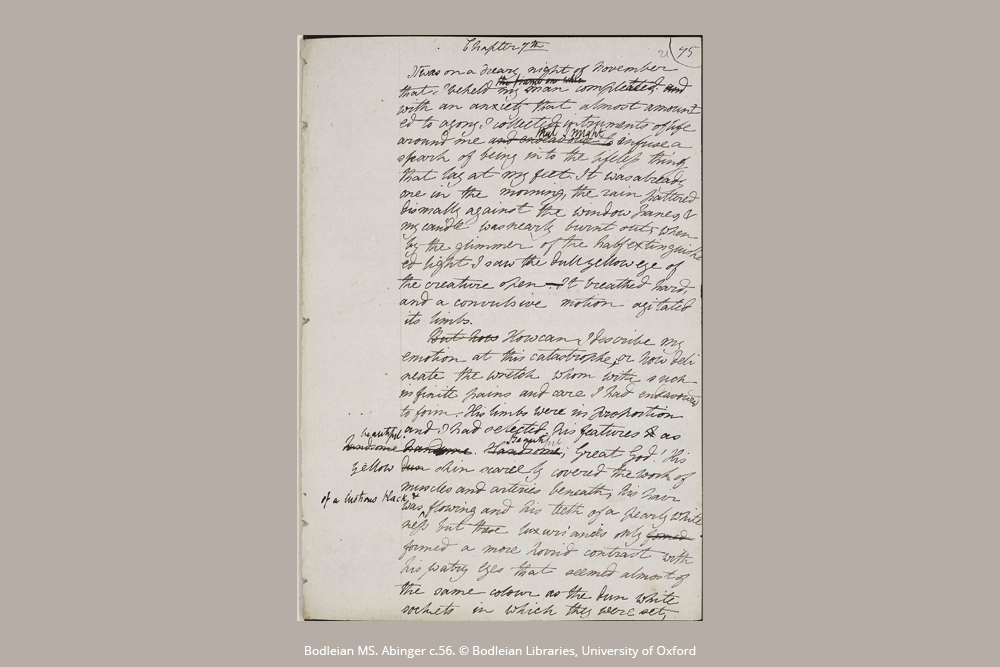 Chapter 7th
95
It was on a dreary night of November
that I beheld the frame on whic my man compleated and
with an anxiety that almost amount
ed to agony, I collected instruments of life
around me and endeavour to that I might infuse a
spark of being into the lifeless thing
that lay at my feet. It was already
one in the morning, the rain pattered
dismally against the window panes, &
my candle was nearly burnt out, when
by the glimmer of the half extinguish
ed light I saw the dull yellow eye of
the creature open – It breathed hard,
and a convulsive motion agitated
its limbs.
But how How can I describe my
emotion at this catastrophe, or how deli
neate the wretch whom with such
infinite pains and care I had endeavoured
to form. His limbs were in proportion
and I had selected his features & as
beautiful
handsome handsome. Handsome beautiful; Great God! His
yellow dun skin scarcely covered the work of
muscles and arteries beneath; his hair
of a lustrous black & was flowing and his teeth of a pearly white
ness but these luxuriancies only formed
formed a more horrid contrast with
his watry eyes that seemed almost of
the same colour as the dun white
sockets in which they were set,
Bodleian MS. Abinger c.56. © Bodleian Libraries, University of Oxford